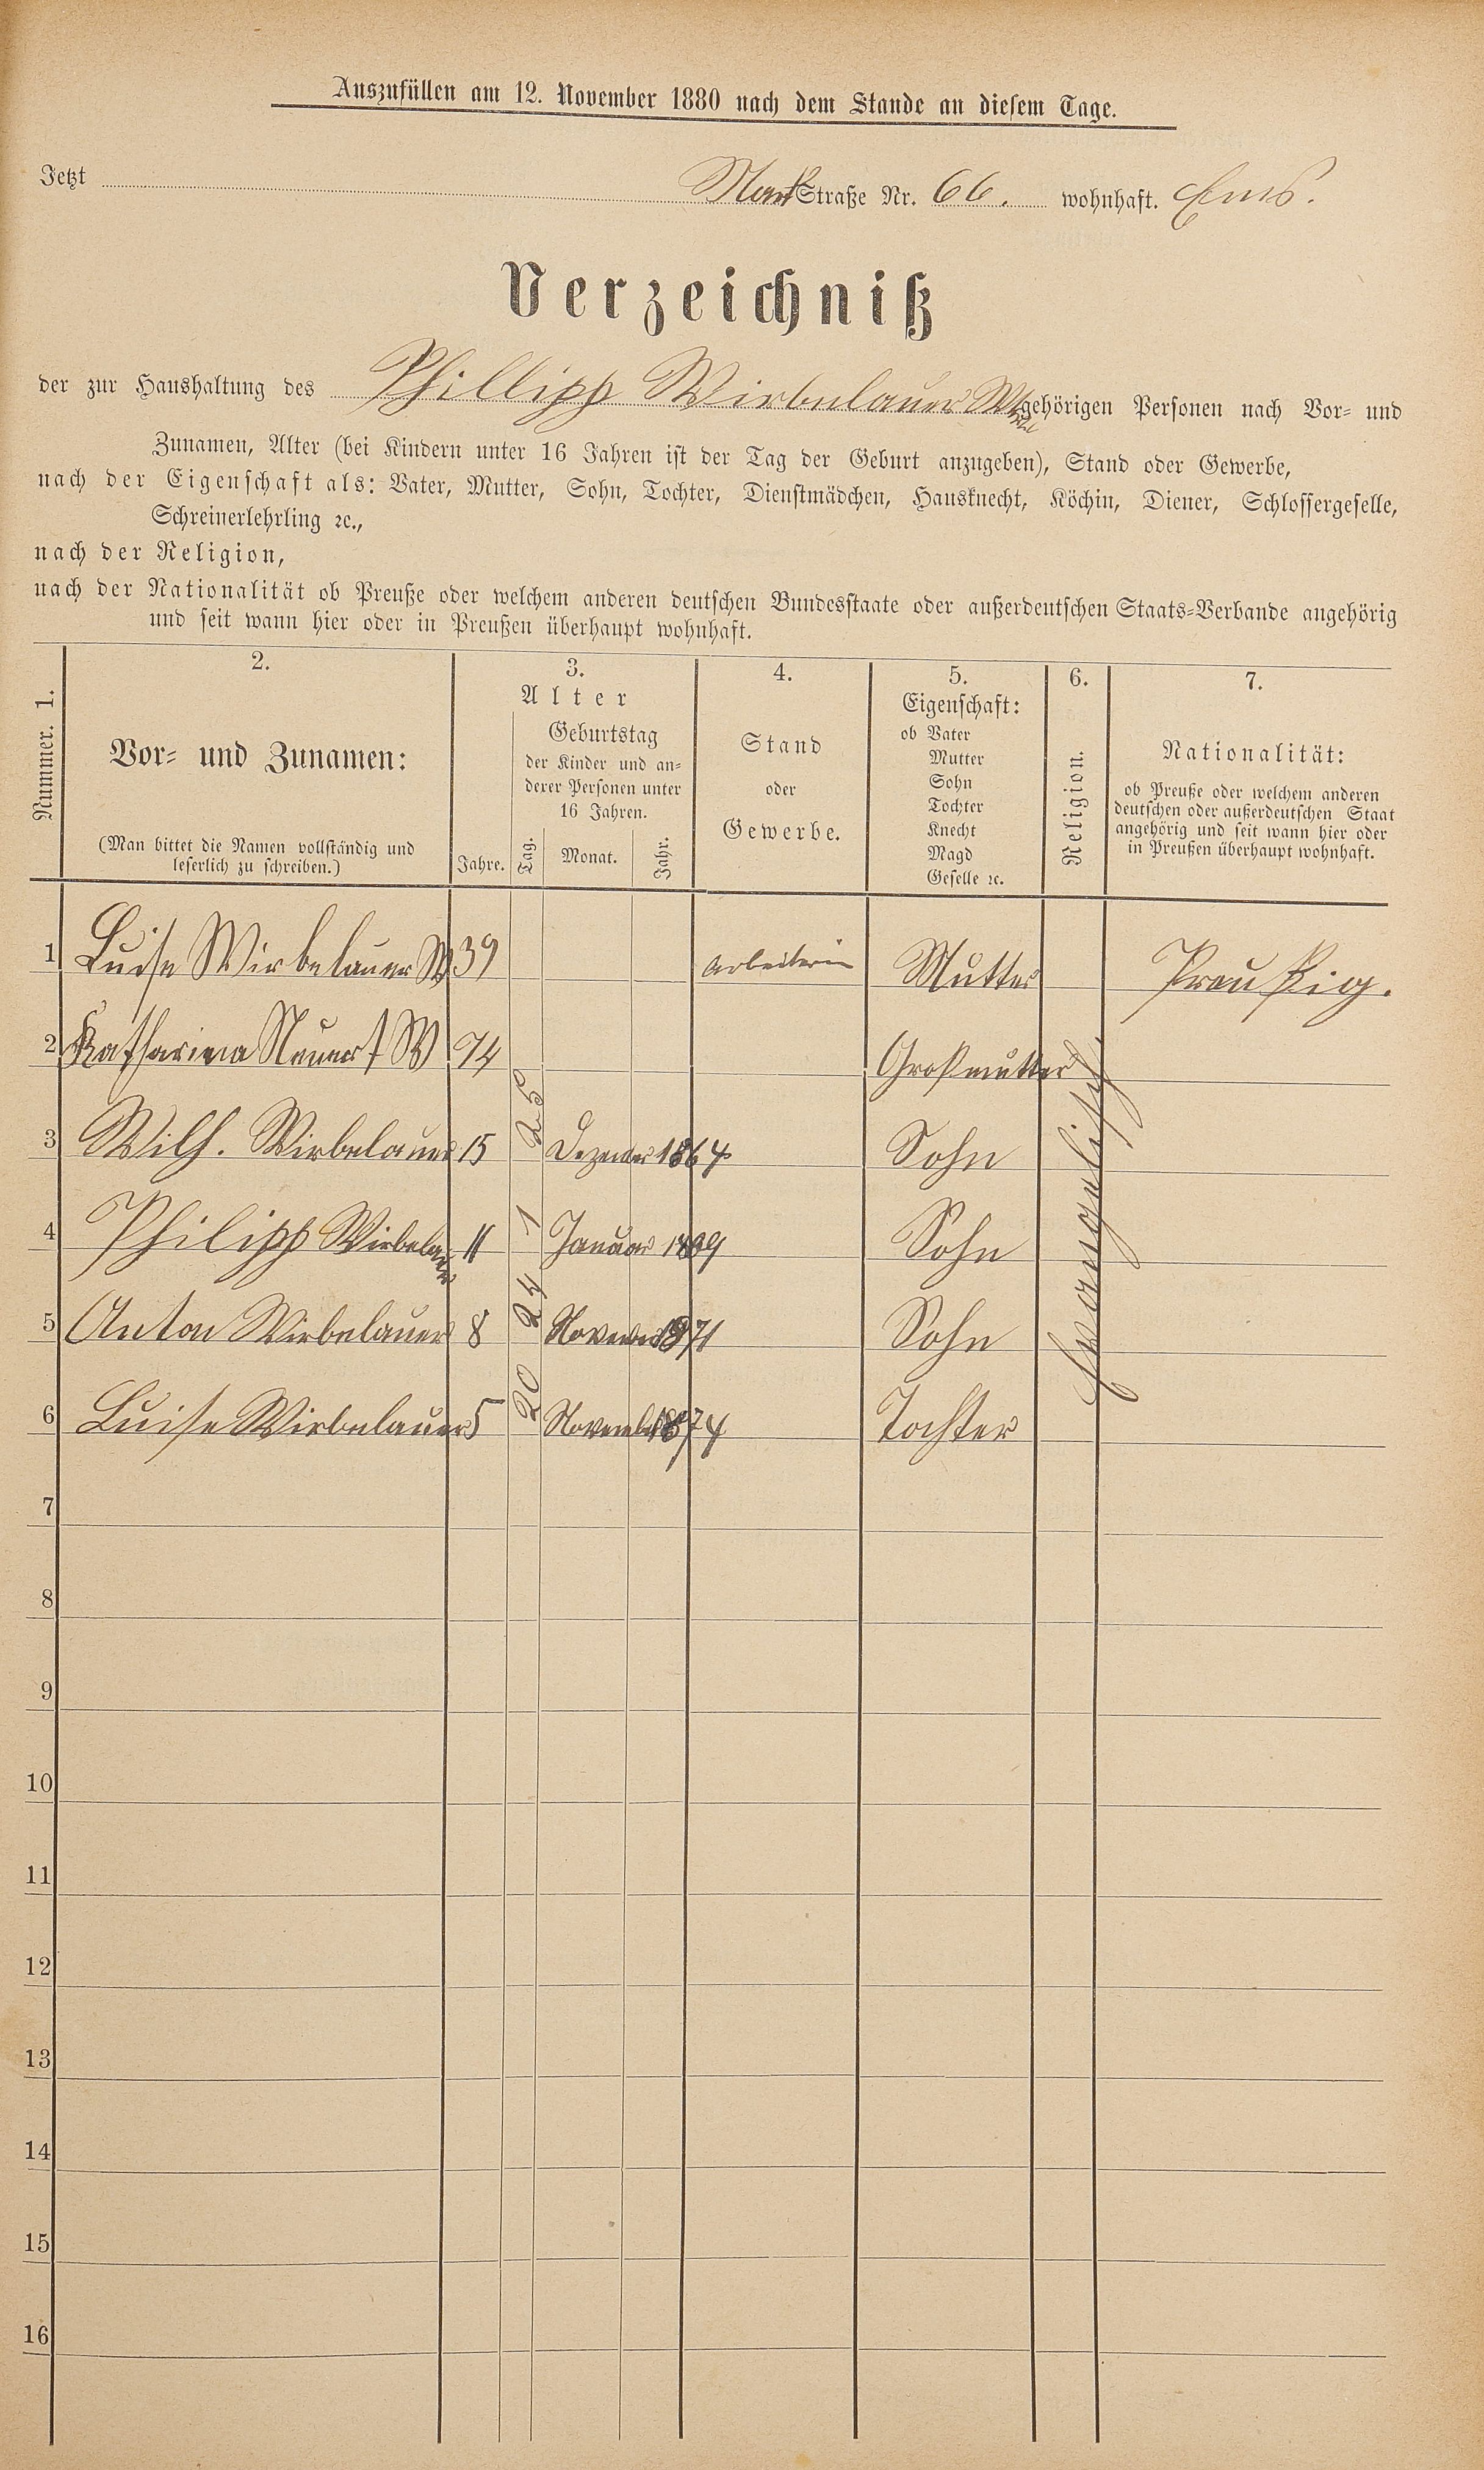 Auszufüllen am 12. November 1880 nach dem Stande an diesem Tage.
Jetzt Markt Straße Nr. 66. wohnhaft. Ems.
Verzeichniß
der zur Haushaltung des Phillipp Wirbelauer gehörigen Personen nach Vor- und
Zunamen, Alter (bei Kindern unter 16 Jahren ist der Tag der Geburt anzugeben), Stand oder Gewerbe,
nach der Eigenschaft als: Vater, Mutter, Sohn, Tochter, Dienstmädchen, Hausknecht, Köchin, Diener, Schlossergeselle,
Schreinerlehrling ꝛc.,
nach der Religion,
nach der Nationalität ob Preuße oder welchem anderen deutschen Bundesstaate oder außerdeutschen Staats-Verbande angehörig
und seit wann hier oder in Preußen überhaupt wohnhaft.
Nummer. 1.
2.
Vor- und Zunamen:
(Man bittet die Namen vollständig und
leserlich zu schreiben.)
3.
Alter
Jahre.
Geburtstag
der Kinder und an-
derer Personen unter
16 Jahren.
Tag. Monat. Jahr.
4.
Stand
oder
Gewerbe.
5.
Eigenschaft:
ob Vater
Mutter
Sohn
Tochter
Knecht
Magd
Geselle ꝛc.
6.
Religion.
7.
Nationalität:
ob Preuße oder welchem anderen
deutschen oder außerdeutschen Staat
angehörig und seit wann hier oder
in Preußen überhaupt wohnhaft.
1 Luise Wirbelauer W 39 Arbeiterin Mutter Preußig.
2 Katharina W 74 Großmutter
3 Wilh. Wirbelauer 15 25 Dezember 1864 Sohn
4 Philipp Wirbelauer 11 1 Januar 1869 Sohn
5 Anton Wirbelauer 8 24 November 1871 Sohn
6 Luise Wirbelauer 5 20 November 1874 Tochter
evangelisch
7
8
9
10
11
12
13
14
15
16